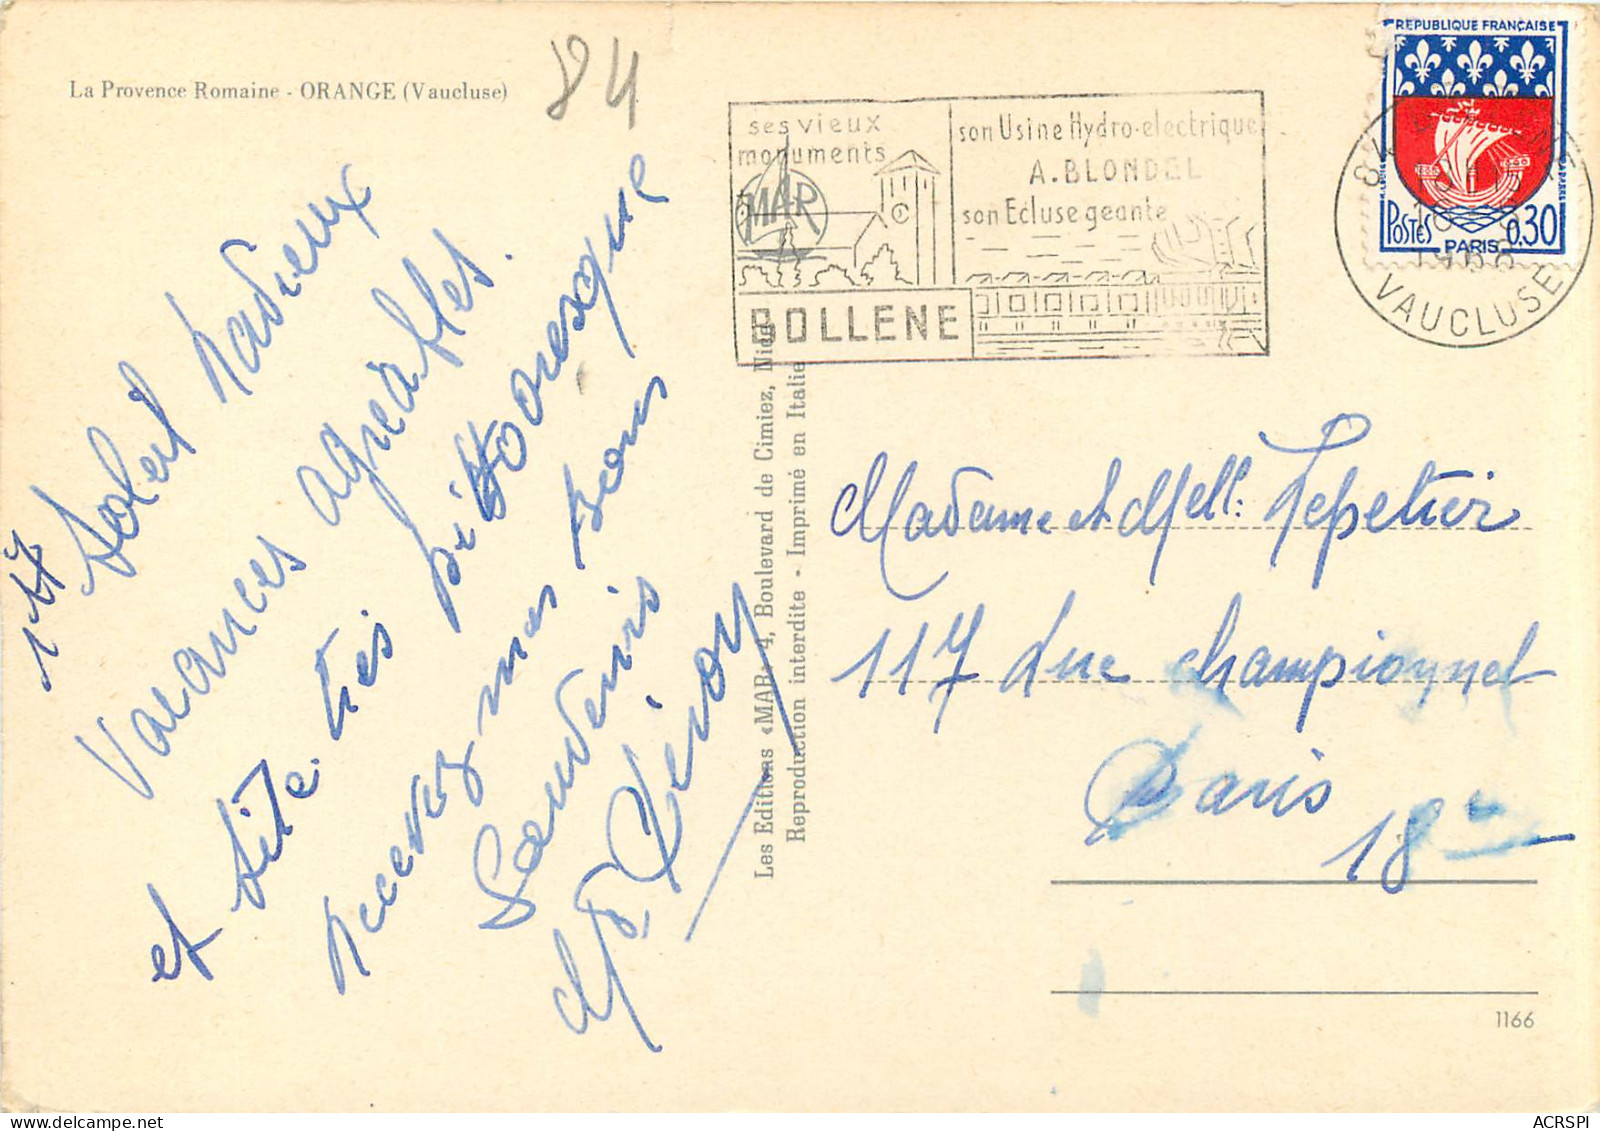 La Provence Romaine - ORANGE (Vaucluse)
84
ses vieux
monuments
MAR
BOLLENE
son Usine Hydro-electrique
A. BLONDEL
son Ecluse geante
REPUBLIQUE FRANÇAISE
POSTES
PARIS
0,30
84
1966
VAUCLUSE
Soleil radieux
Vacances agréables.
et site très pittoresque
recevez nos bons
Souvenirs
Les Editions «MAR» 4, Boulevard de Cimiez, Nice
Reproduction interdite - Imprimé en Italie
Madame et Mell: Lepetier
117 rue championnet
Paris
18
1166
ACRSPI